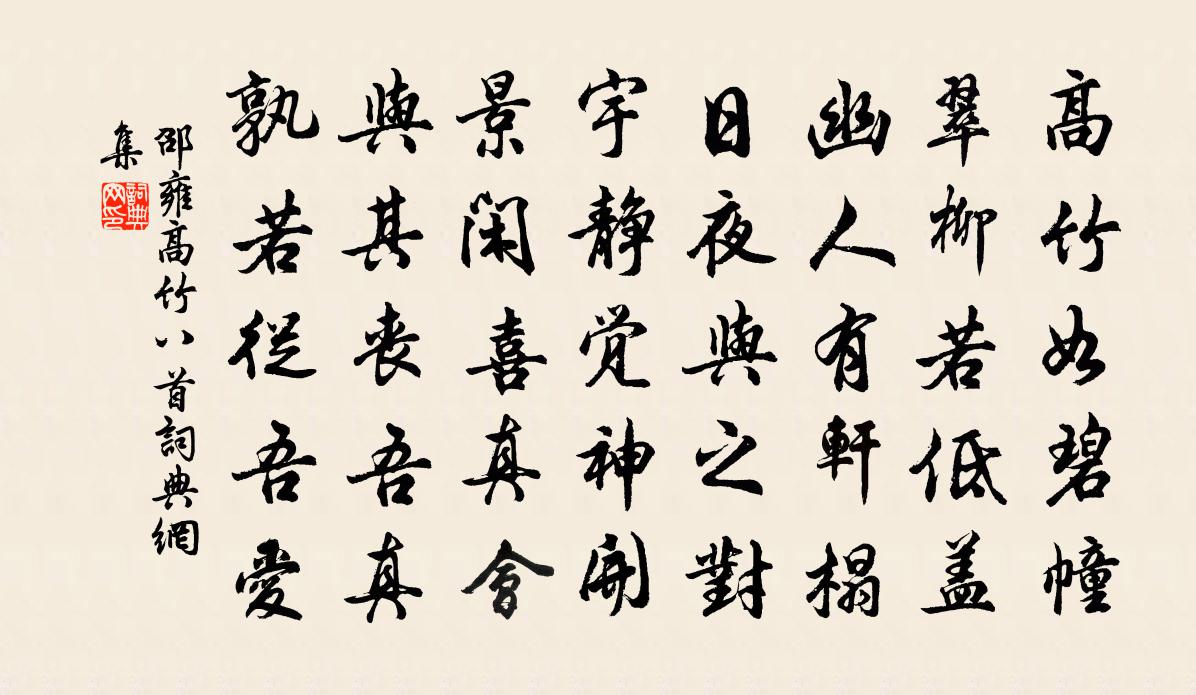 高竹如碧幢
翠柳若低盖
幽人有軒榻
日夜與之對
宇静覚神開
景閑喜真會
與其喪吾真
孰若從吾愛
邵雍高竹八首詞典網
集
詞典網印